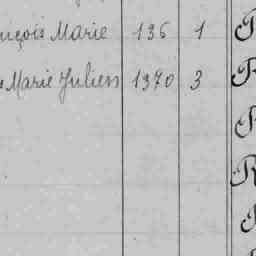 nçois Marie 136 1
s Marie Julien 1370 3